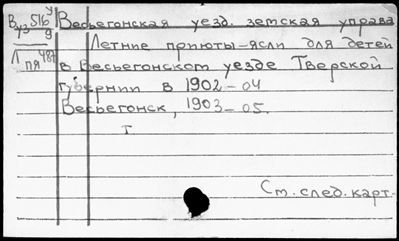 В 516 у
уз 9
Л 487
пя
Весьегонская уезд. земская управа
Летние приюты-ясли для детей
в Весьегонском уезде Тверской
губернии в 1902-04
Весьегонск, 1903-05.
т
См. след. карт.